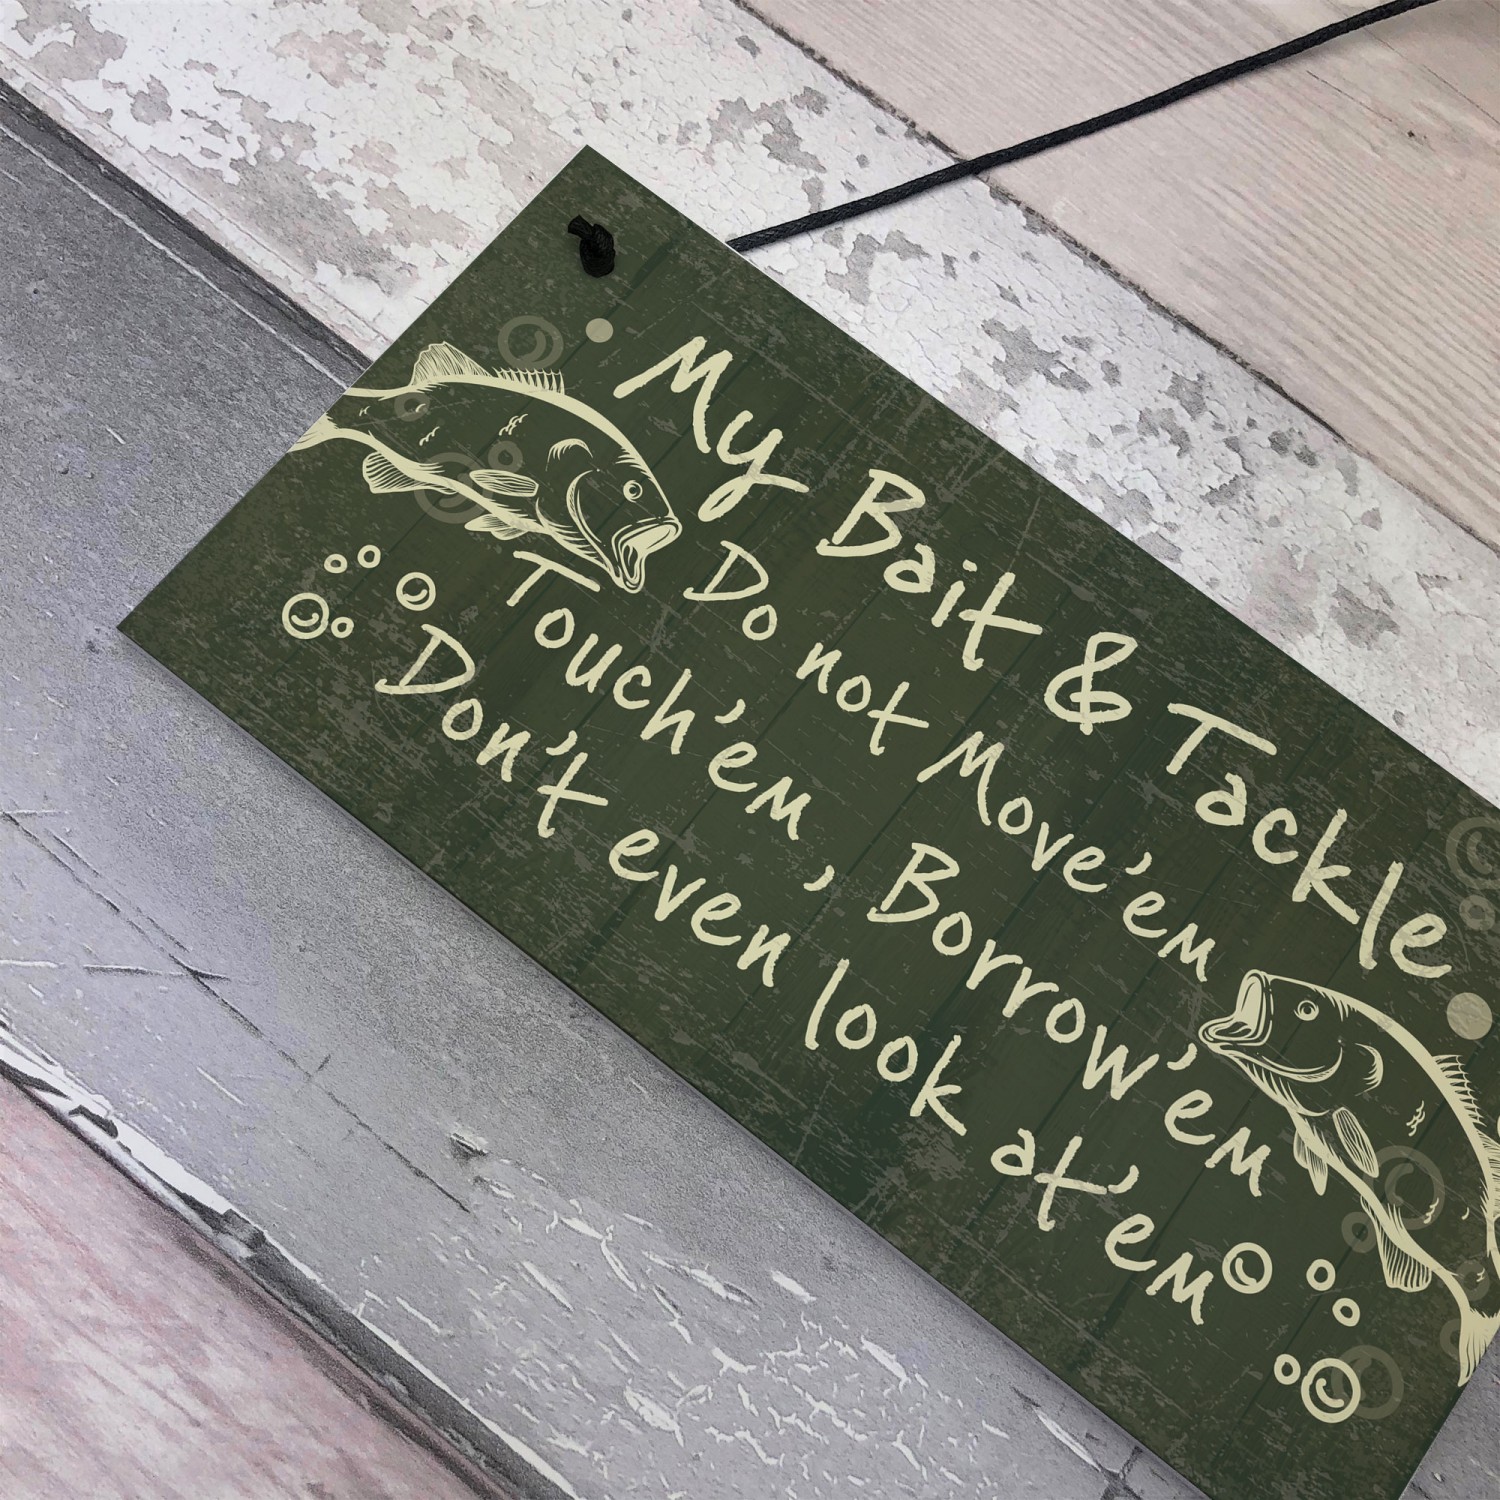 My Bait & Tackle
Do not Move'em
Touch'em, Borrow'em
Don't even look at'em